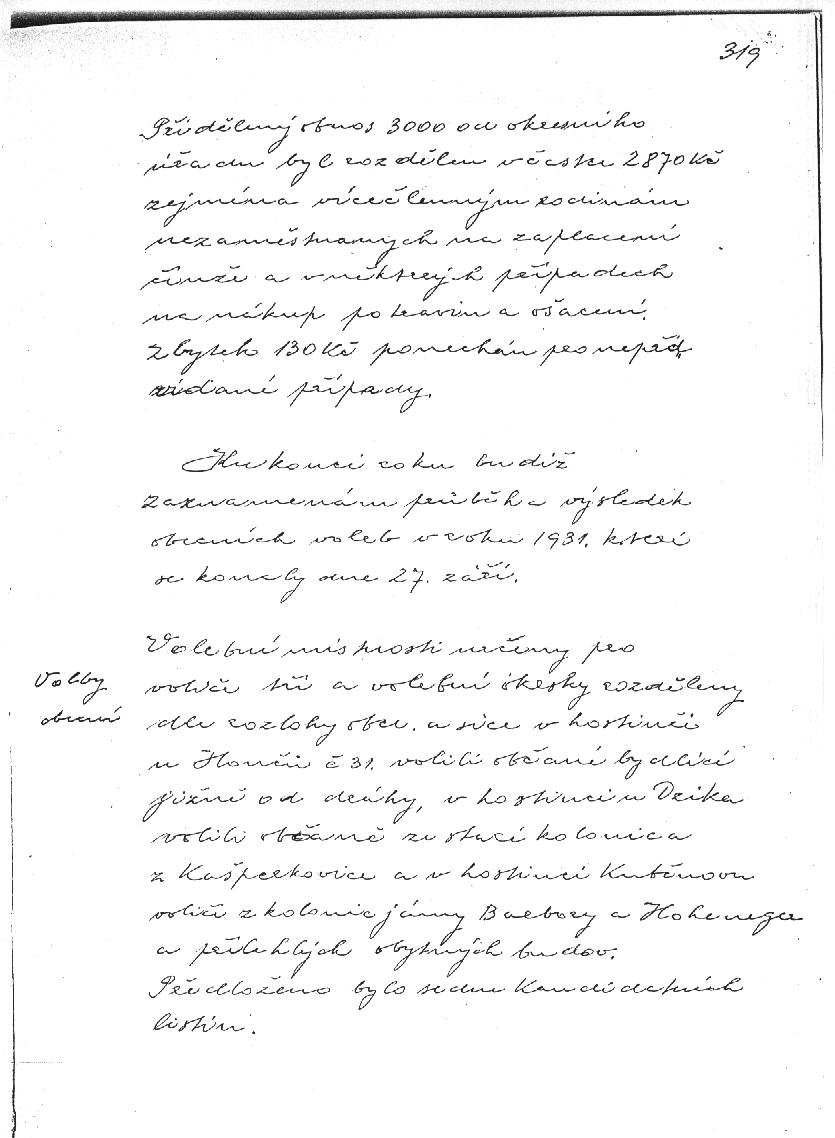 319
Přidělený obnos 3000 od okresního
úřadu byl rozdělen v částce 2870 Kč
zejména vícečlenným rodinám
nezaměstnaných na zaplacení
činže a v některých případech
na nákup potravin a ošacení.
Zbytek 130 Kč ponechán pro nepřed„
vídané případy.
Ku konci roku budiž
zaznamenán průběh a výsledek
obecních voleb v roku 1931. kteréž
se konaly dne 27. září.
Volby
obecní
Volební místnosti určeny pro
voliče tři a volební okrsky rozděleny
dle rozlohy obce. a sice v hostinci
u Hončů č 31. volili občané bydlící
jižně od dráhy, v hostinci u Dzika
volili občané ze staré kolonie a
z Kašperkovice a v hostinci Kuběnovu
voliči z kolonie jámy Barbory a Hohenegger
a přilehlých obytných budov.
Předloženo bylo sedm kandidátních
listin.